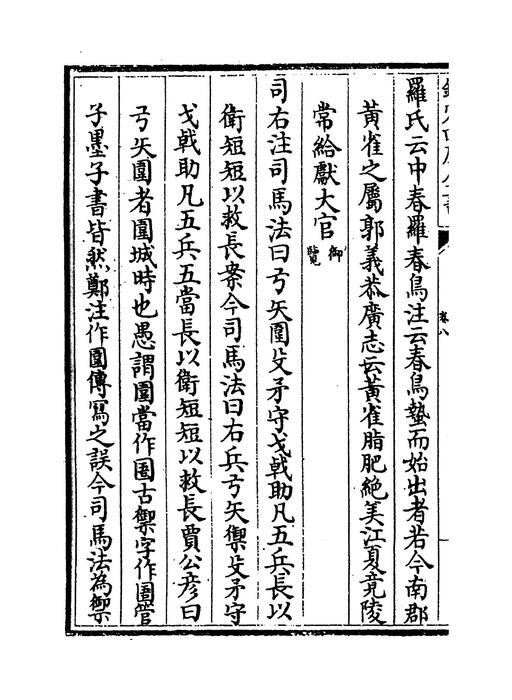 欽定四庫全書
卷八
羅氏云中春羅春鳥注云春鳥蟄而始出者若今南郡
黃雀之屬郭義恭廣志云黃雀脂肥絶美江夏竟陵
常給獻大官御覽
司右注司馬法曰弓矢圍殳矛守戈戟助凡五兵長以
衛短短以救長案今司馬法曰右兵弓矢禦殳矛守
戈戟助凡五兵五當長以衛短短以救長賈公彦曰
弓矢圍者圍城時也愚謂圍當作圉古禦字作圉管
子墨子書皆然鄭注作圍傳寫之誤今司馬法為禦